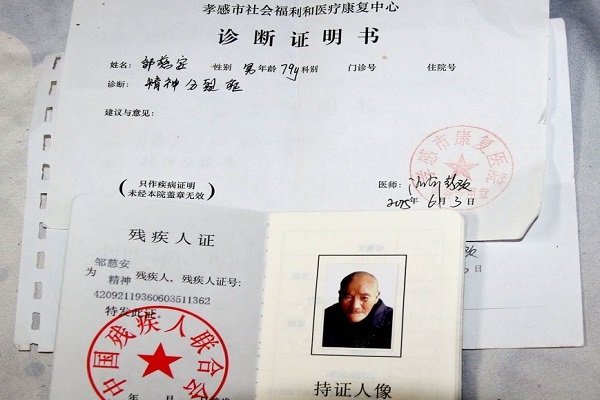 孝感市社会福利和医疗康复中心
诊断证明书
姓名: 邹慈安 性别 男 年龄 79y 科别 门诊号 住院号
诊断: 精神分裂症
建议与意见:
孝感市康复医院
只作疾病证明
未经本院盖章无效
医师:
2015年6月3日
月3日
残疾人证
邹慈安
为 精神 残疾人,残疾人证号:
42092119360603511362
特发此证。
中国残疾人联合会
年 月
持证人像